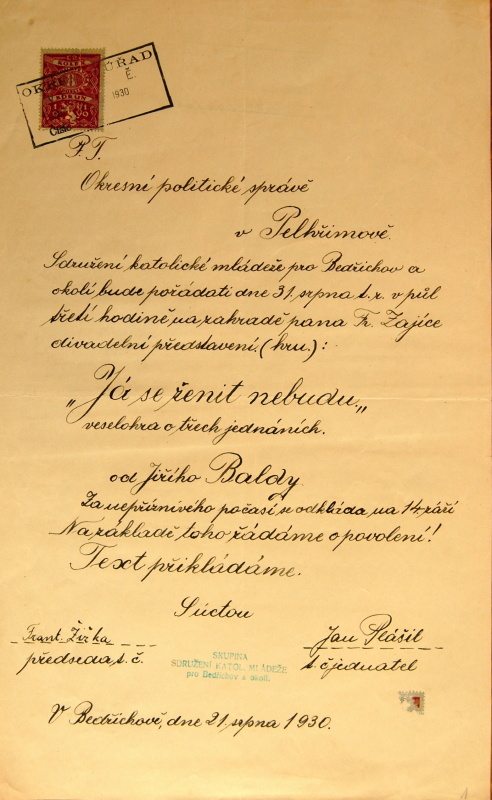 KOLEK
OKRES ÚŘAD
Č.
1930
P. T.
Okresní politické správě
v Pelhřimově.
Sdružení katolické mládeže pro Bedřichov a
okolí bude pořádati dne 31. srpna t. r. v půl
třetí hodině na zahradě pana Fr. Zajíce
divadelní představení. (hru.):
„Já se ženit nebudu.„
veselohra o třech jednáních.
od Jiřího Baldy.
Za nepříznivého počasí se odkládá na 14. září
Na základě toho žádáme o povolení!
Text přikládáme.
S úctou
Frant. Žižka
Jan Plášil
předseda t. č.
t. č jednatel
SKUPINA
SDRUŽENÍ KATOL. MLÁDEŽE
pro Bedřichov a okolí.
V Bedřichově, dne 21. srpna 1930.